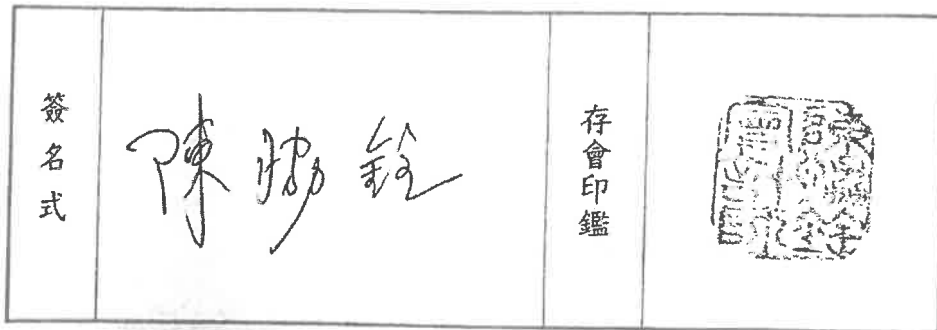 簽名式
陳勝銓
存會印鑑